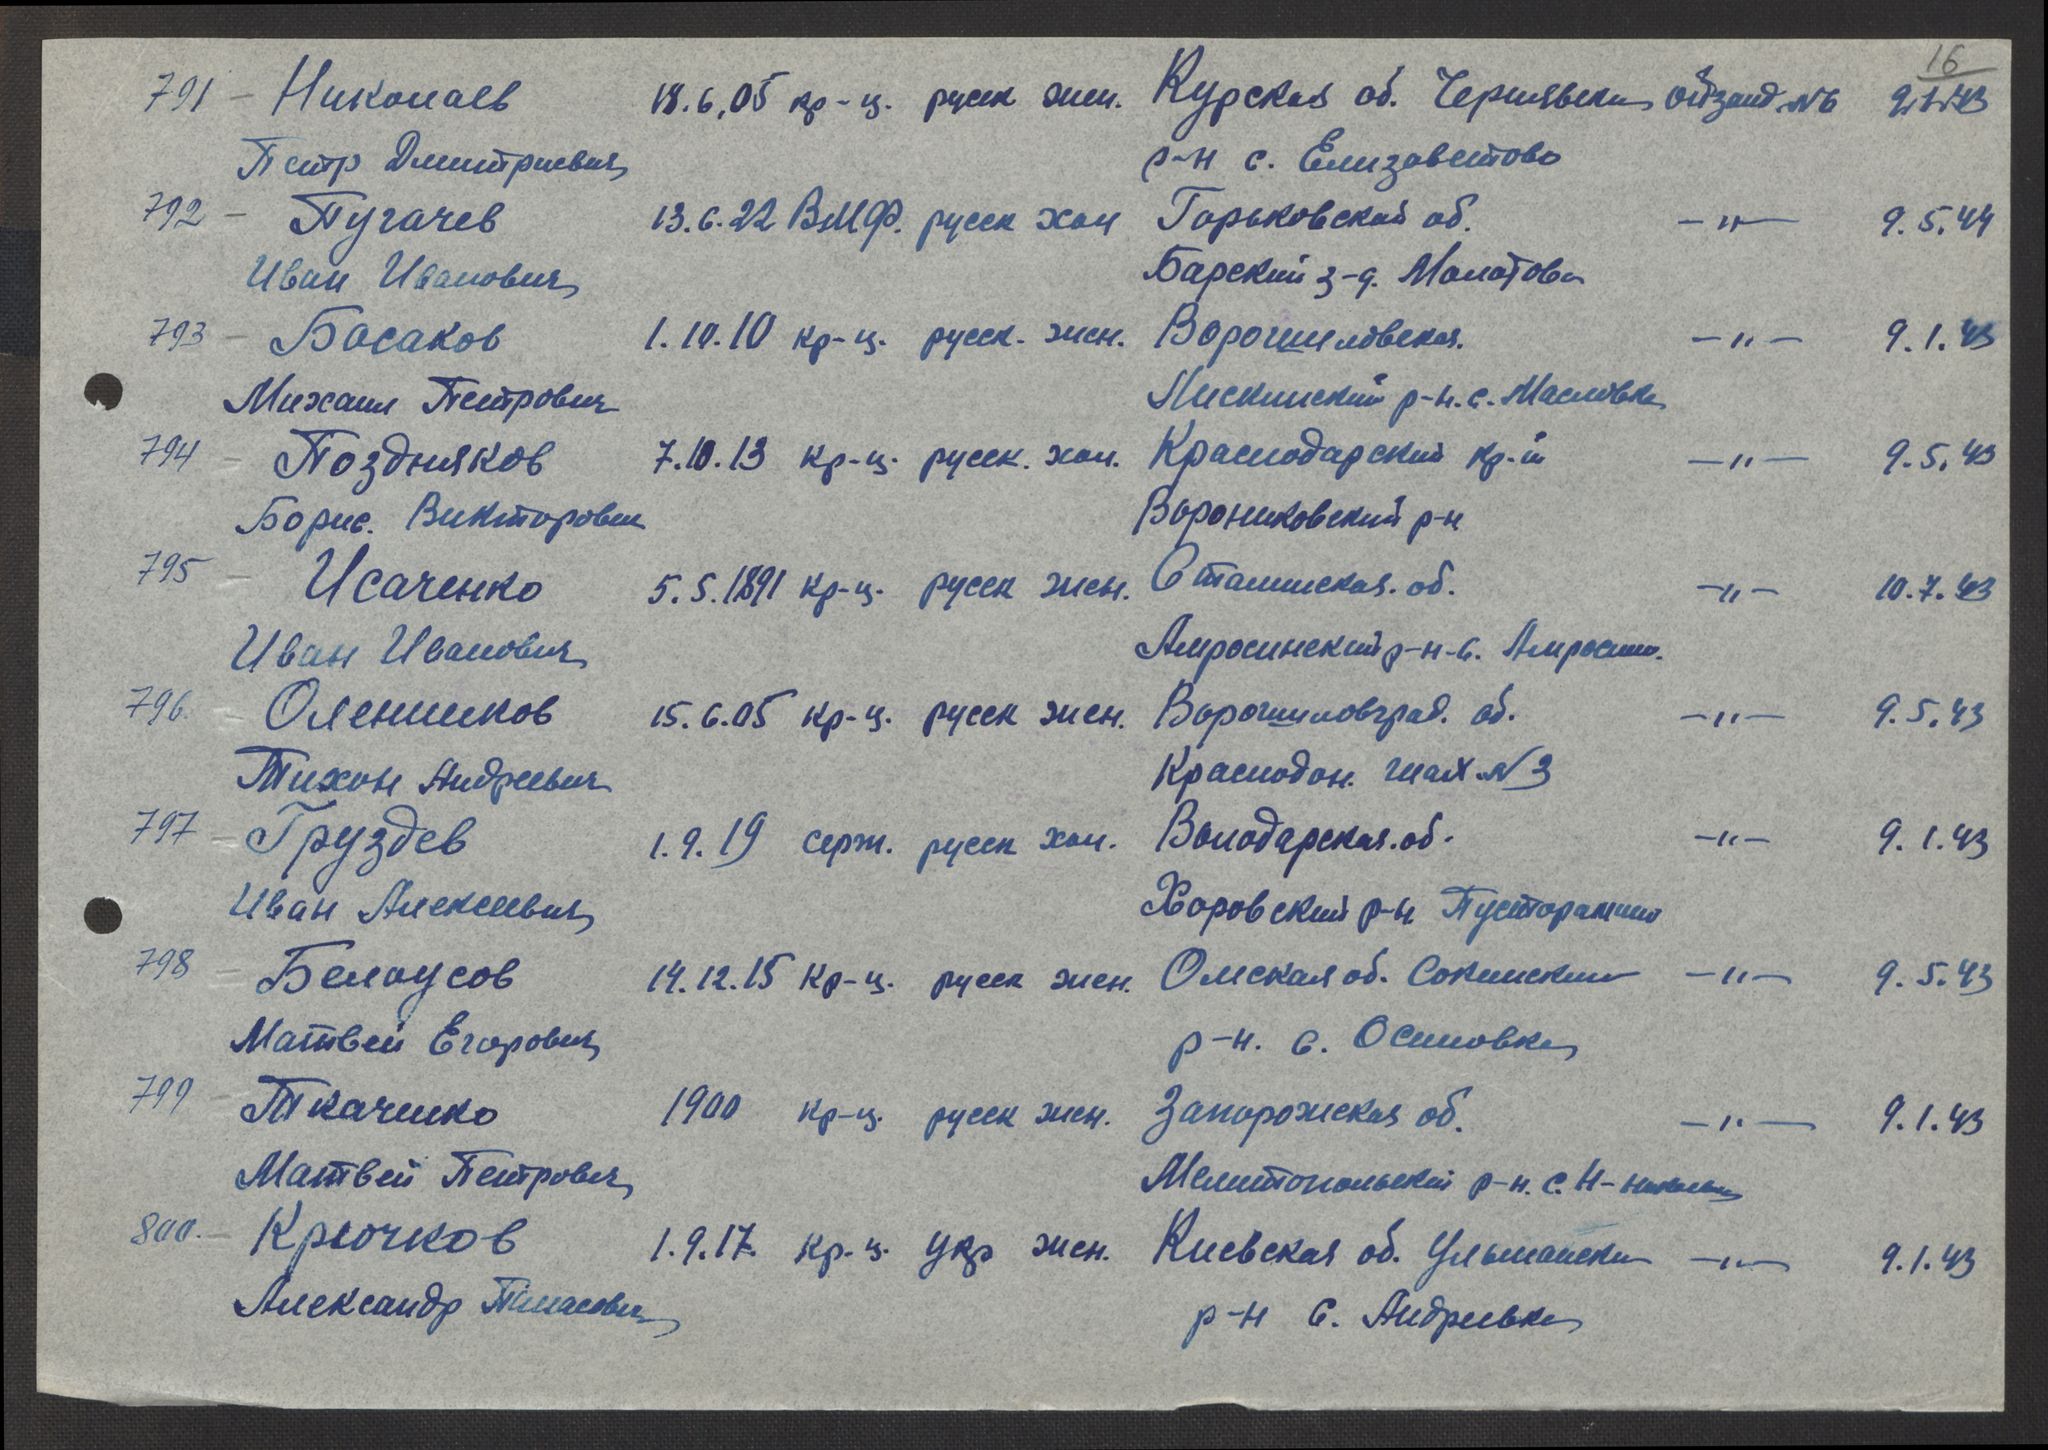 16
791 – Николаев 18.6.05 кр-ц. русск жен. Курская об. Чернявски
Петр Дмитриевич р-н с. Елизаветово
792 – Пугачев 13.6.22 ВМФ. русск хол Горьковской об. –"– 9.5.44
Иван Иванович Барский з-д. Молотова
793 – Босаков 1.10.10 кр-ц. русск. жен. Ворошиловская. –"– 9.1.43
Михаил Петрович Лискинский р-н. с. Масловка
794 – Поздняков 7.10.13 кр-ц. русск. хол. Краснодарский кр-й –"– 9.5.43
Борис. Викторович р-н
795 – Исаченко 5.5.1891 кр-ц. русск жен. Сталинская. об. –"– 10.7.43
Иван Иванович Амросинский р-н-с.
796. – Оленников 15.6.05 кр-ц. русск жен. Ворошиловград. об. –"– 9.5.43
Тихон Андреевич Краснодон. шах. №3
797 – Груздев 1.9.19 серж. русск хол. Володарская. об. –"– 9.1.43
Иван Алексеевич Харовский р-н
798 – Белоусов 14.12.15 кр-ц. русск жен. Омская об. –"– 9.5.43
Матвей Егорович р-н. с. Осиновка
799 – Ткаченко 1900 кр-ц. русск жен. Запорожская об. –"– 9.1.43
Матвей Петрович Мелитопольский р-н. с.
800. – Крючков 1.9.17. кр-ц. укр жен. Киевская об. –"– 9.1.43
Александр р-н с. Андреевка